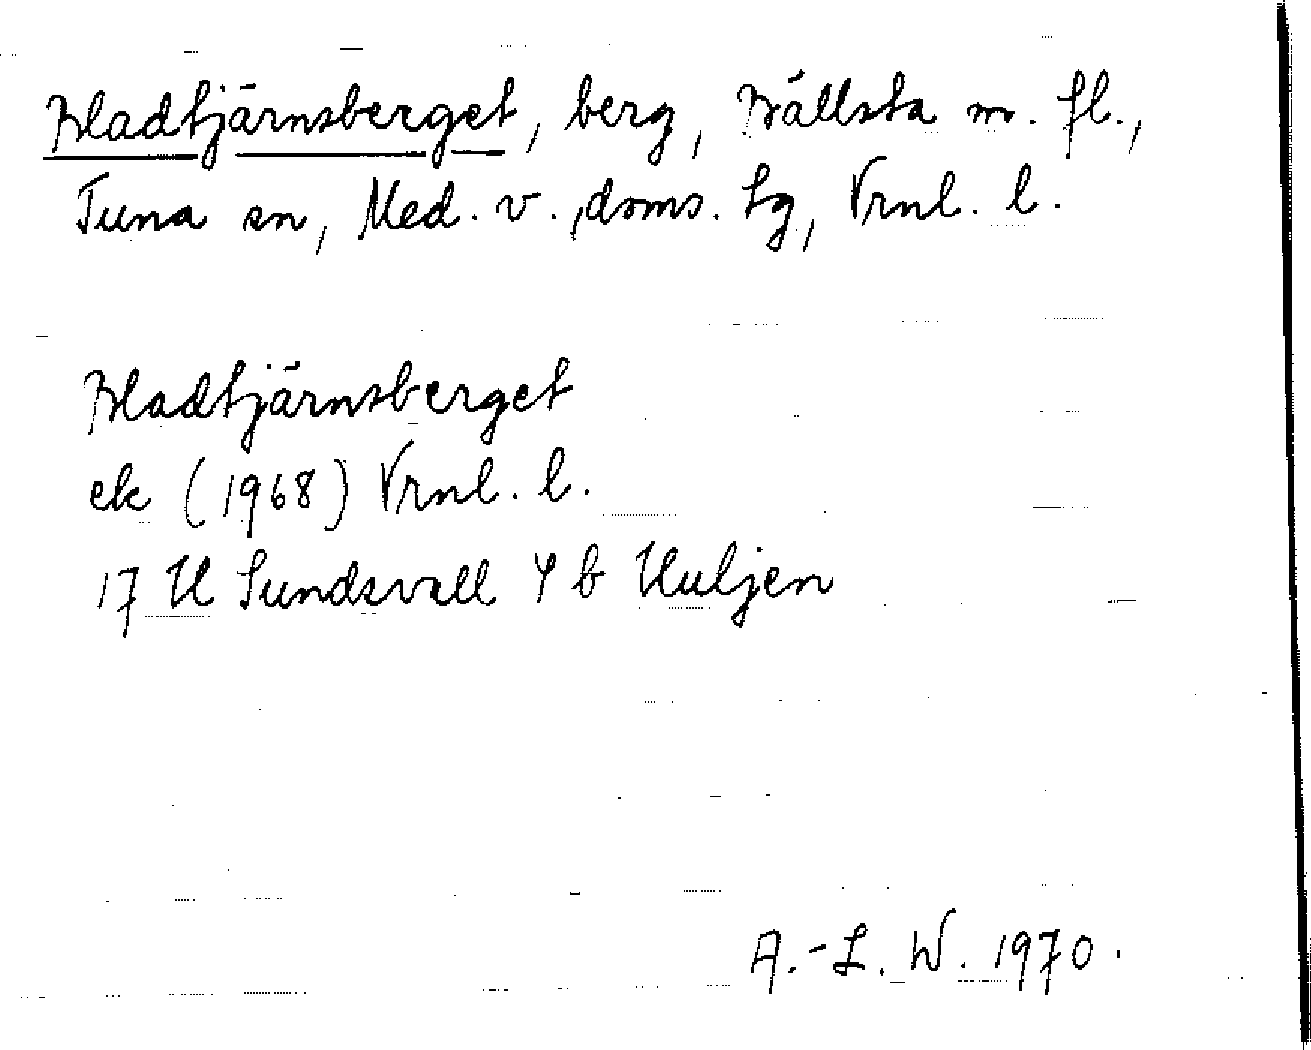 Bladtjärnsberget, berg, Bällsta m. fl.,
Tuna sn, Med. v., doms. tg, Vrnl. l.
Bladtjärnsberget
ek (1968) Vrnl. l.
17 H Sundsvall 4 b Huljen
A.-L. W. 1970.